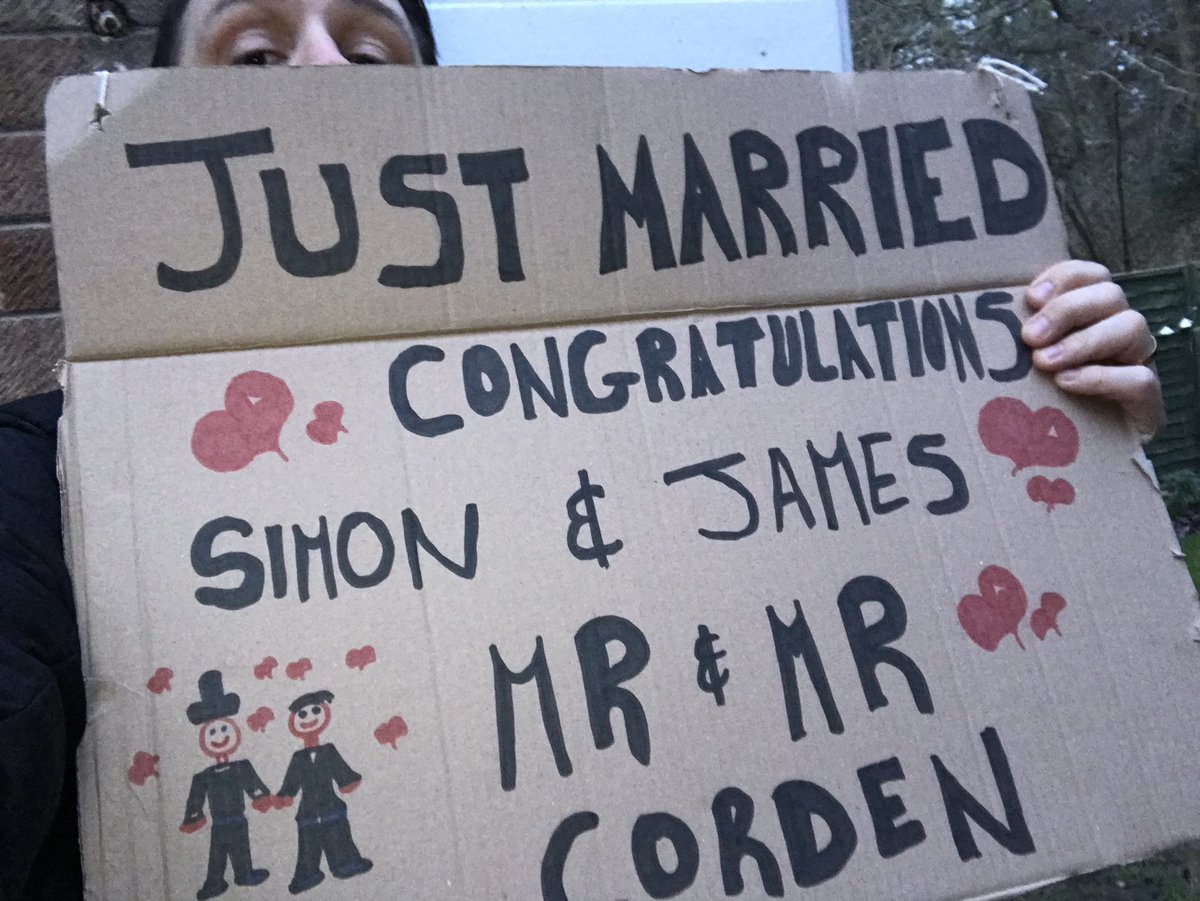 JUST MARRIED
CONGRATULATIONS
SIMON & JAMES
MR & MR
CORDEN